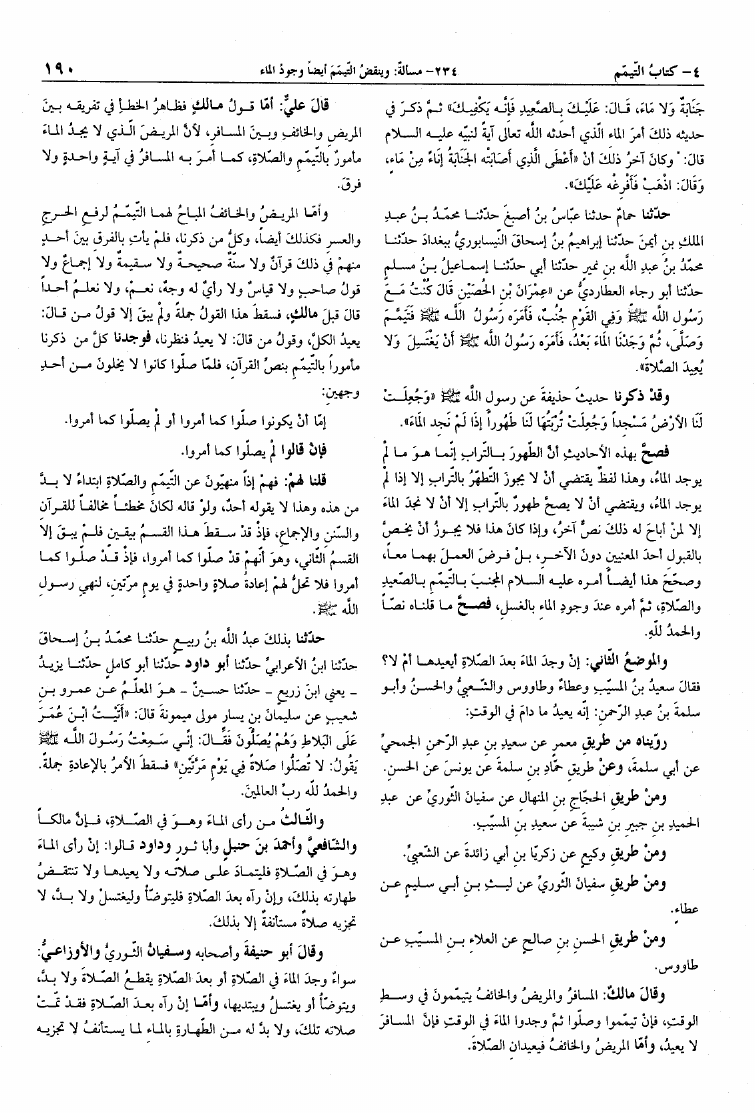 ٤- كتابُ التيمّم
٢٣٤- مسألة: وينقضُ التّيمّمَ أيضاً وجودُ الماء
١٩٠
جَنَابَةٌ وَلا مَاءَ، قَالَ: عَلَيْكَ بِالصَّعِيدِ فَإِنَّه يَكْفِيكَ» ثمَّ ذكرَ في
حديثه ذلك أمرَ الماءِ الّذي أحدثه اللّه تعالى آيةً لنبيّه عليه السلام
قالَ: "وكانَ آخرُ ذلكَ أنْ «أَعْطَى الَّذِي أَصَابَتْه الجَنَابَةُ إنَاءً مِنْ مَاءٍ،
وَقَالَ: اذْهَبْ فَأَفْرِغْه عَلَيْكَ».
حدّثنا حمامٌ حدثنا عبّاسُ بنُ أصبغَ حدّثنا محمّدُ بـنُ عبدِ
الملكِ بنِ أيمنَ حدّثنا إبراهيمُ بنُ إسحاقَ النّيسابوريُّ ببغدادَ حدّثنا
محمّدُ بنُ عبدِ اللّه بنِ نميرٍ حدّثنا أبي حدّثنـا إسمـاعيلُ بـنُ مسـلمٍ
حدّثنا أبو رجاءٍ العطارديُّ عن «عِمْرَانَ بْنِ الحُصَيْنِ قَالَ كُنْتُ مَـعَ
رَسُولِ اللّه ﷺ وَفِي القَوْمِ جُنُبٌ، فَأَمَرَه رَسُولُ اللّـه ﷺ فَتَيَمَّمَ
وَصَلَّى، ثُمَّ وَجَدْنَا المَاءَ بَعْدُ، فَأَمَرَه رَسُولُ اللّه ﷺ أَنْ يَغْتَسِلَ وَلا
يُعِيدَ الصَّلاةَ».
وقدْ ذكرنا حديثَ حذيفةَ عن رسولِ اللّه ﷺ «وَجُعِلَـتْ
لَنَا الأرْضُ مَسْجِداً وَجُعِلَتْ تُرْبَتُهَا لَنَا طَهُوراً إِذَا لَمْ نَجِدِ المَاءَ».
فصحَّ بهذه الأحاديثِ أنَّ الطّهورَ بـالتّرابِ إنّمـا هـوَ مـا لم
يوجدِ الماءُ، وهذا لفظٌ يقتضي أنْ لا يجوزَ التّطهّرُ بالتّرابِ إلا إذا لم
يوجدِ الماءُ، ويقتضي أنْ لا يصحَّ طهورٌ بالتّرابِ إلا أنْ لا نجدَ الماءَ
إلا لمنْ أباحَ له ذلكَ نصٌّ آخرُ، وإذا كانَ هذا فلا يجوزُ أنْ يخـصَّ
بالقبولِ أحدُ المعنيينِ دونَ الآخـرِ، بـلْ فـرضَ العمـلِ بهمـا معـاً،
وصحّحَ هذا أيضـاً أمـره عليـه السـلام المجنبَ بـالتّيمّمِ بـالصّعيدِ
والصّلاةِ، ثمَّ أمره عندَ وجودِ الماءِ بالغسلِ، فصـحَّ مـا قلنـاه نصّـاً
والحمدُ للّهِ.
والموضعُ الثّاني: إنْ وجدَ الماءَ بعدَ الصّلاةِ أيعيدهـا أمْ لا؟
فقالَ سعيدُ بنُ المسيّبِ وعطاءٌ وطاووس والشّـعبيُّ والحسنُ وأبـو
سلمةَ بنُ عبدِ الرّحمنِ: إنّه يعيدُ ما دامَ في الوقتِ:
روّيناه من طريقِ معمرٍ عن سعيدِ بنِ عبدِ الرّحمنِ الجمحيِّ
عن أبي سلمةَ، وعنْ طريقِ حمّادِ بنِ سلمةَ عن يونسَ عن الحسنِ.
ومنْ طريقِ الحجّاجِ بنِ المنهالِ عن سفيانَ الثّوريِّ عن عبدِ
الحميدِ بنِ جبيرِ بنِ شيبةَ عن سعيدِ بنِ المسيّبِ.
ومنْ طريقِ وكيعٍ عن زكريّا بنِ أبي زائدةَ عن الشّعبيِّ.
ومنْ طريقِ سفيانَ الثّوريِّ عن ليـثِ بـنِ أبـي سليمٍ عـن
عطاءٍ.
ومنْ طريقِ الحسنِ بنِ صالحٍ عن العلاءِ بـنِ المسيّبِ عـن
طاووس.
وقالَ مالكٌ: المسافرُ والمريضُ والخائفُ يتيمّمونَ في وسطِ
الوقتِ، فإنْ تيمّموا وصلّوا ثمَّ وجدوا الماءَ في الوقتِ فإنَّ المسافرَ
لا يعيدُ، وأمّا المريضُ والخائفُ فيعيدانِ الصّلاةَ.
قالَ عليٌّ: أمّا قـولُ مـالكٍ فظـاهرُ الخطـأِ في تفريقـه بـينَ
المريضِ والخائفِ وبـينَ المسافرِ، لأنَّ المريضَ الّـذي لا يجـدُ المـاءَ
مأمورٌ بالتّيمّمِ والصّلاةِ، كمـا أمـرَ بـه المسـافرُ في آيـةٍ واحـدةٍ ولا
فرقَ.
وأمّا المريـضُ والخـائفُ المبـاحُ لهمـا التّيمّـمُ لرفـعِ الحـرجِ
والعسرِ فكذلكَ أيضاً، وكلُّ من ذكرنا، فلـمْ يأتِ بـالفرقِ بينَ أحـدٍ
منهمْ في ذلكَ قرآنٌ ولا سنّةٌ صحيحـةٌ ولا سقيمةٌ ولا إجماعٌ ولا
قولُ صاحبٍ ولا قيـاسٌ ولا رأيٌ له وجهٌ، نعـمْ، ولا نعلـمُ أحـداً
قالَ قبلَ مالكٍ، فسقطَ هذا القولُ جملةً ولمْ يبقَ إلا قولُ مـن قـالَ:
يعيدُ الكلَّ، وقولُ من قالَ: لا يعيدُ فنظرنـا، فوجدنا كلَّ من ذكرنا
مأموراً بالتّيمّمِ بنصِّ القرآنِ، فلمّـا صلّوا كانوا لا يخلونَ مـن أحـدِ
وجهينِ:
إمّا أنْ يكونوا صلّوا كما أمروا أو لمْ يصلّوا كما أمروا.
فإنْ قالوا لمْ يصلّوا كما أمروا.
قلنـا لهمْ: فهـمْ إذاً منهيّونَ عن التّيمّـمِ والصّـلاةِ ابتـداءً لا بـدَّ
من هذه وهذا لا يقوله أحدٌ، ولوْ قاله لكانَ مخطئـاً مخالفـاً للقـرآنِ
والسّننِ والإجماعِ، فإذْ قدْ سـقطَ هـذا القسـمُ بيقـينٍ فلـمْ يبـقَ إلاَّ
القسـمُ الثّاني، وهوَ أنّهمْ قدْ صلّـوا كمـا أمروا، فإذْ قـدْ صلّـوا كمـا
أمروا فلا تحلُّ لهمْ إعادةُ صلاةٍ واحدةٍ في يومٍ مرّتينِ، لنهيِ رسـولِ
اللّه ﷺ.
حدّثنا بذلكَ عبدُ اللّه بنُ ربيعٍ حدّثنـا محمّـدُ بـنُ إسـحاقَ
حدّثنا ابنُ الأعرابيِّ حدّثنا أبو داود حدّثنا أبو كاملٍ حدّثنـا يزيـدُ
- يعني ابنَ زريعٍ - حدّثنا حسـينٌ - هـوَ المعلّـمُ عـن عمـرو بـنِ
شعيبٍ عن سليمانَ بنِ يسارٍ مولى ميمونةَ قالَ: «أَتَيْتُ ابْنَ عُمَرَ
عَلَى البَلاطِ وَهُمْ يُصَلُّونَ فَقَـالَ: إنِّـي سَـمِعْتُ رَسُـولَ اللّـه ﷺ
يَقُولُ: لا تُصَلُّوا صَلاةً فِي يَوْمٍ مَرَّتَيْنِ» فسقطَ الأمرُ بالإعادةِ جملةً.
والحمدُ للّه ربِّ العالمينَ.
والثّـالثُ مـن رأى المـاءَ وهـوَ في الصّـلاةِ، فـإنَّ مالكـاً
والشّافعيَّ وأحمدَ بنَ حنبلٍ وأبـا ثـورٍ وداود قـالوا: إنْ رأى المـاءَ
وهـوَ في الصّلاةِ فليتمـادَ علـى صلاتـه ولا يعيدهـا ولا تنتقـضُ
طهارته بذلكَ، وإنْ رآه بعدَ الصّلاةِ فليتوضّـأْ وليغتسلْ ولا بـدَّ، لا
تجزيه صلاةٌ مستأنفةٌ إلا بذلكَ.
وقالَ أبو حنيفةَ وأصحابه وسفيانُ الثّـوريُّ والأوزاعـيُّ:
سواءٌ وجدَ الماءَ في الصّلاةِ أو بعدَ الصّلاةِ يقطـعُ الصّـلاةَ ولا بـدَّ،
ويتوضّـأُ أو يغتسلُ ويبتديها، وأمّـا إنْ رآه بعـدَ الصّـلاةِ فقـدْ تمّـتْ
صلاته تلكَ، ولا بدَّ له مـن الطّهـارةِ بالمـاءِ لمـا يسـتأنفُ لا تجزيـه